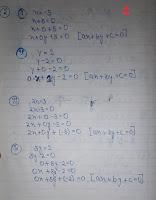 ② ① x=-5
x+5=0
x+0+5=0
x+0y+5=0 [ax+by+c=0]
② y=2
y-2=0
y+0-2=0
0x+1y-2=0 [ax+by+c=0]
③ 2x=3
2x-3=0
2x+0-3=0
2x+0y-3=0
2x+0y+(-3)=0 [ax+by+c=0]
5y=2
5y-2=0
0+5y-2=0
0x+5y-2=0
0x+5y+(-2)=0 [ax+by+c=0]